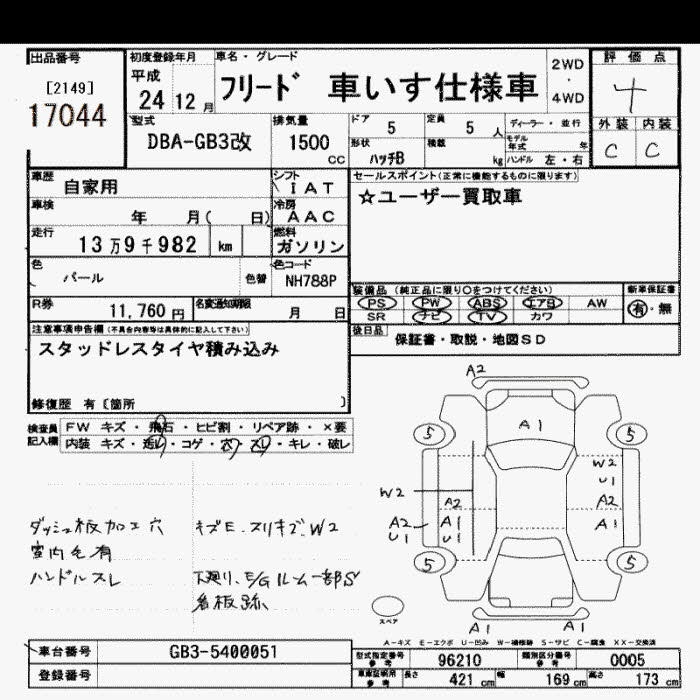 出品番号
[2149]
17044
初度登録年月
平成
24年12月
車名・グレード
フリード 車いす仕様車
2WD
・
4WD
評価点
外装 内装
C C
型式
DBA-GB3改
排気量
1500
cc
ドア 5
定員 5 人
ディーラー・並行
形状
ハッチB
積載 kg
モデル年式 年
ハンドル 左・右
車歴 自家用
シフト
IAT
セールスポイント(正常に機能するものに限ります)
☆ユーザー買取車
車検 年 月( 日)
冷房
AAC
走行 13万9千982 km
燃料
ガソリン
色 パール 色替
色コード
NH788P
装備品 (純正品に限り○をつけてください)
PS PW ABS エアB AW
SR ナビ TV カワ
新車保証書
有・無
R券 11,760円
名変通知期限 月 日
後日品 保証書・取説・地図SD
注意事項申告欄(不具合内容等は具体的に記入して下さい)
スタッドレスタイヤ積み込み
修復歴 有〔箇所 〕
検査員記入欄
FW キズ・飛石・ヒビ割・リペア跡・×要
内装 キズ・汚れ・コゲ・穴・スレ・キレ・破レ
ダッシュ板加工穴 キズE.スリキズ.W2
室内毛有
ハンドルスレ 下廻り、E/Gルーム一部S
看板跡
A2
A1
5 5
W2
U1
W2
A2 A2
A2 A1 A1
U1 U1
5 5
スペア
A1 A1
A-キズ E-エクボ U-凹み W-補修跡 S-サビ C-腐食 XX-交換済
車台番号 GB3-5400051
登録番号
型式指定番号 参考 96210
類別区分番号 参考 0005
車庫証明用 参考 長さ 421cm 幅 169cm 高さ 173cm